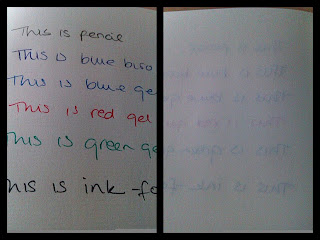 This is pencil
This is blue biro
This is blue ge
This is red gel
This is green ge
This is ink-fo